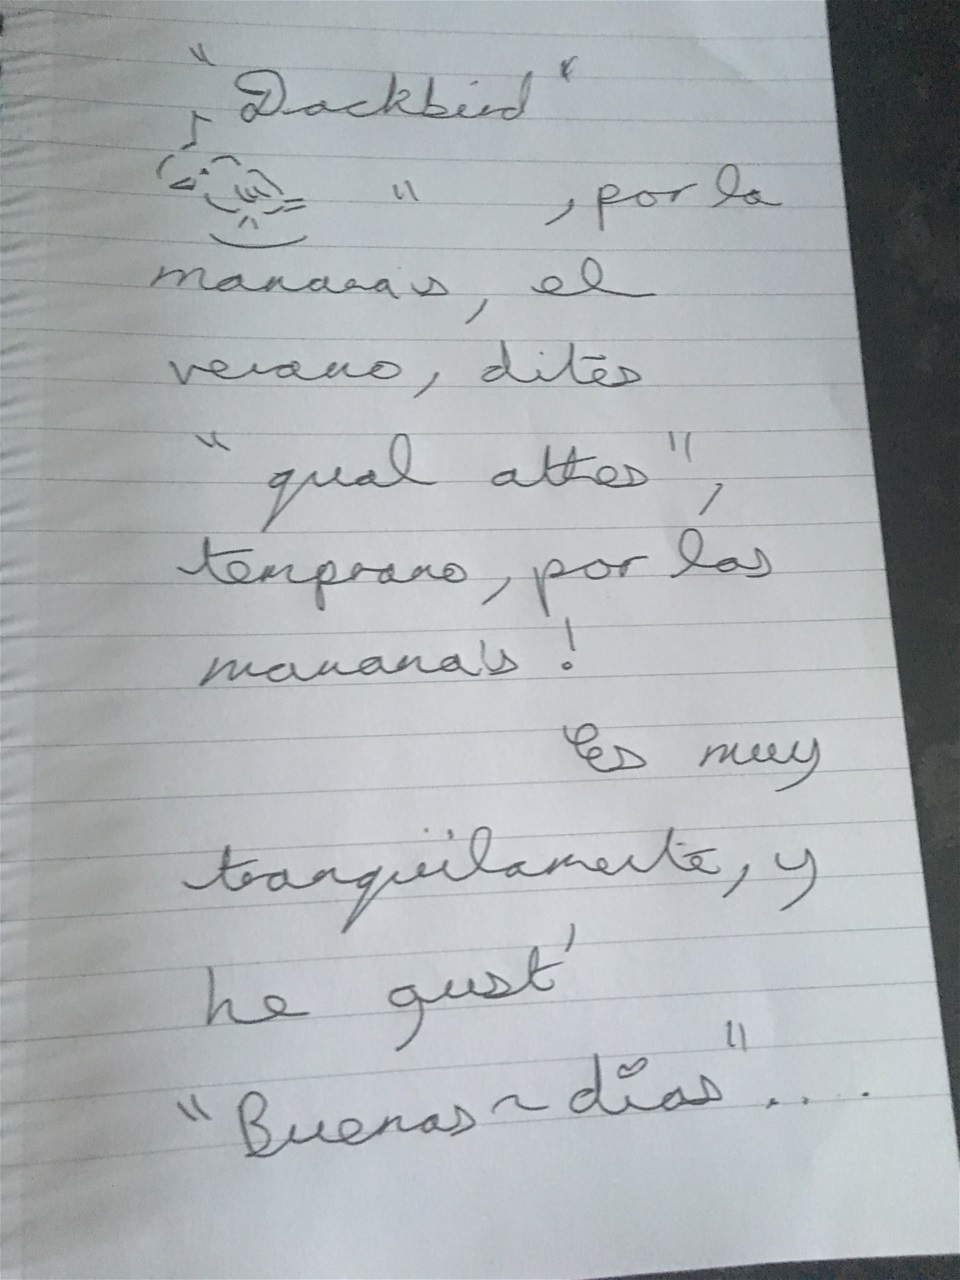 "Dackbird"
" , por la
mananas, el
verano, dites
"qual attes",
temprano, por las
mananas !
Es muy
tranqüilamente, y
he gust'
"Buenas ~ dias" ...